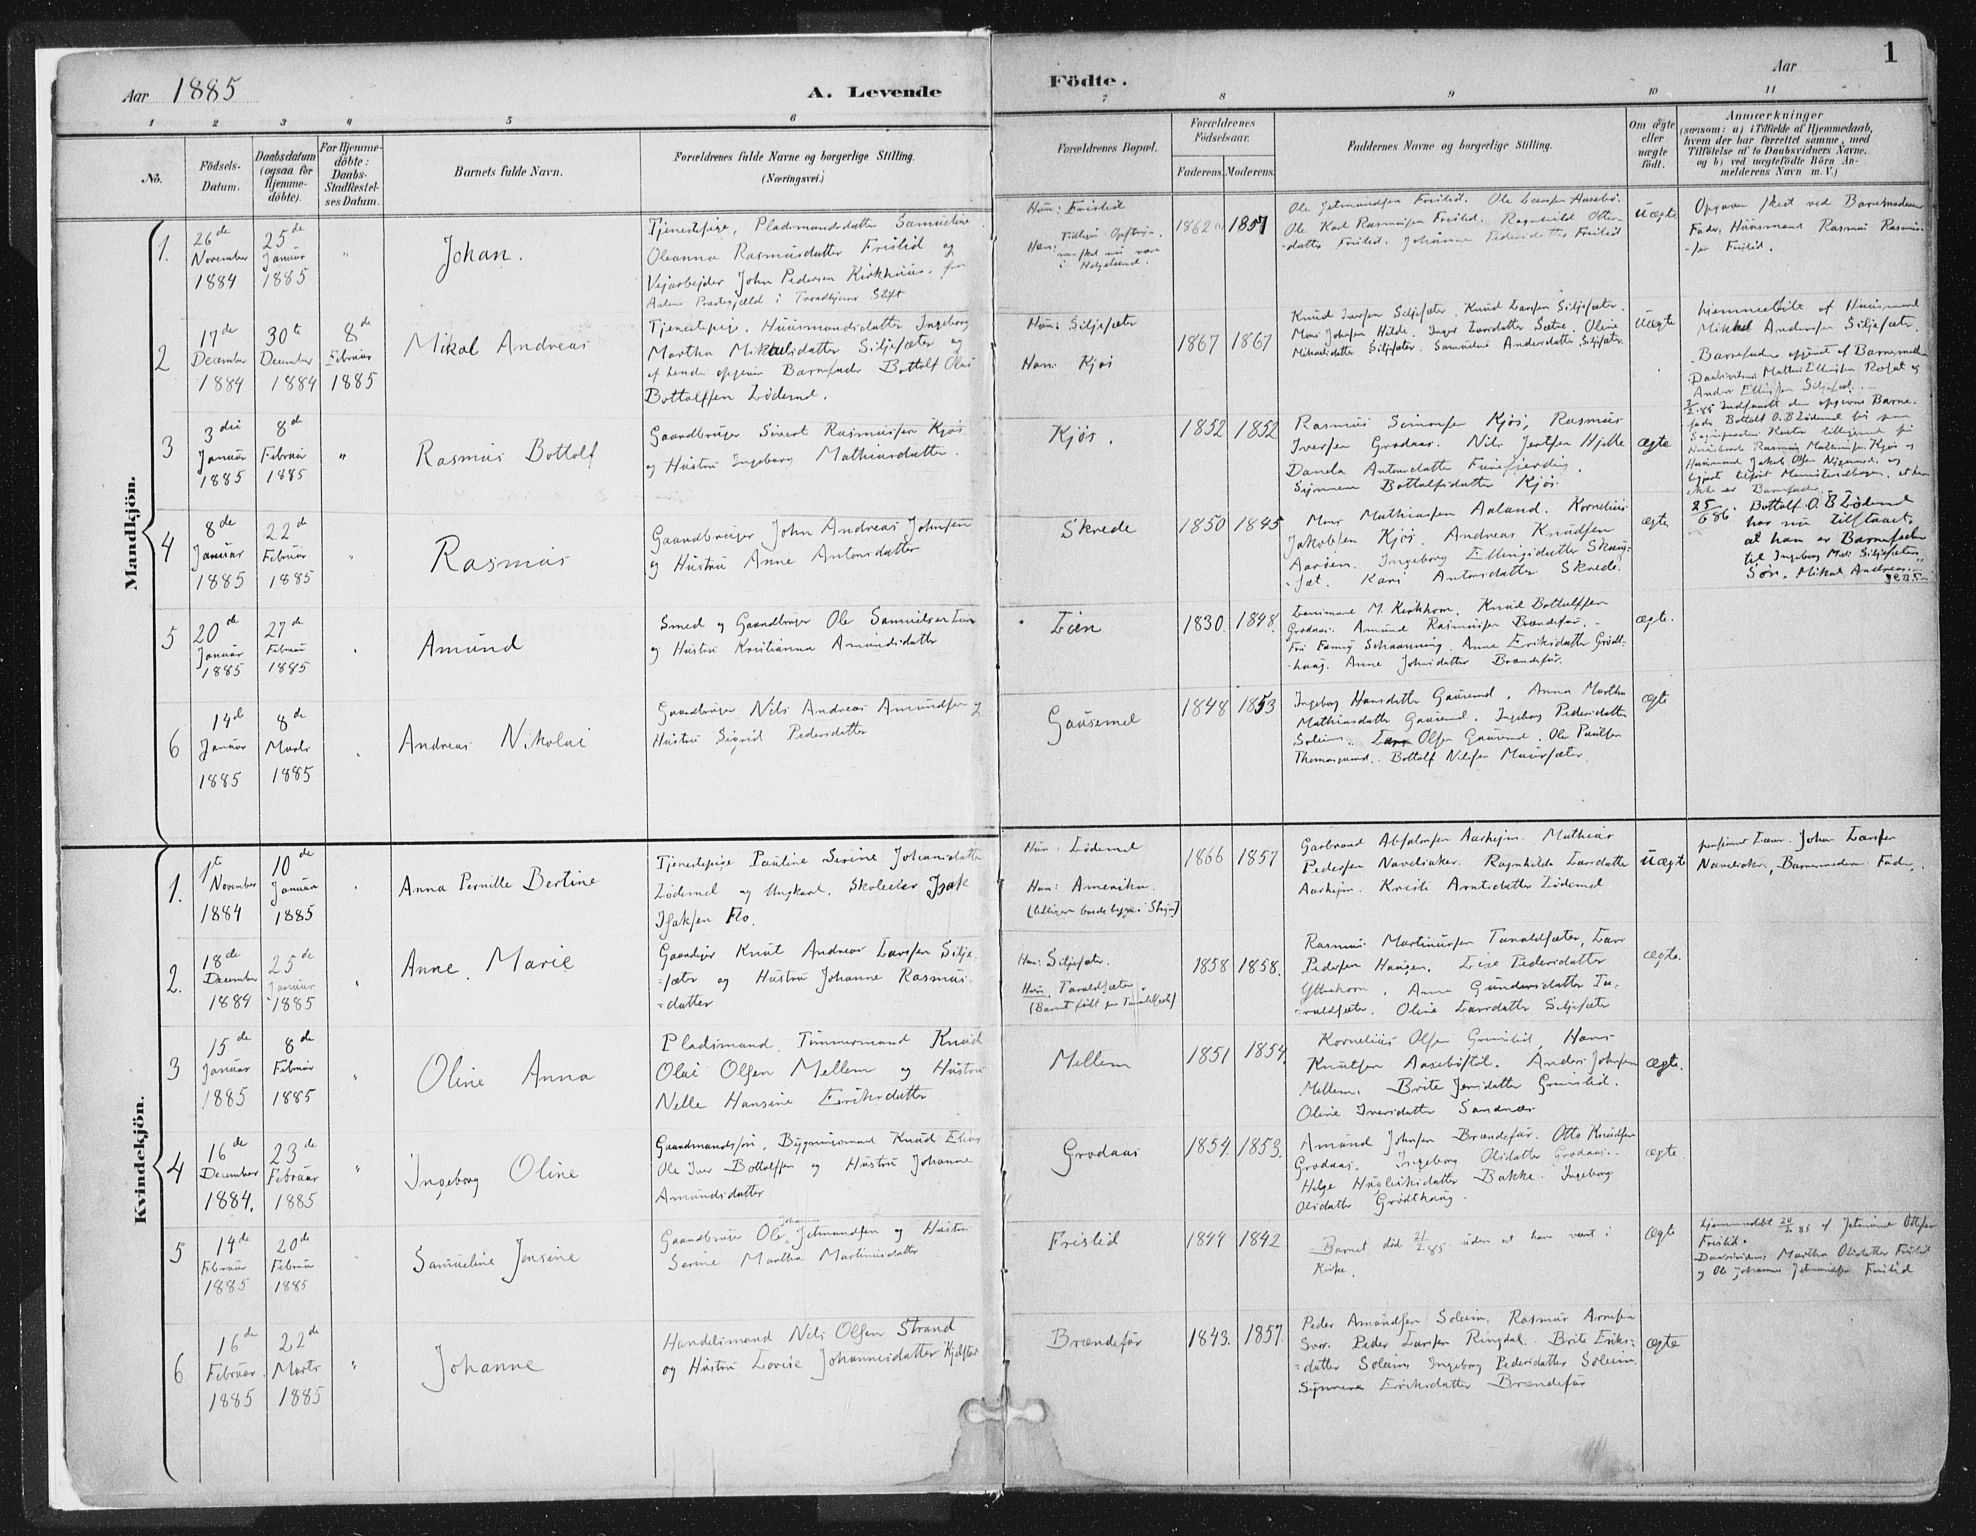 Aar 1885
A. Levende
Födte.
Aar
1
1 2 3 4 5 6
7 8 9 10 11
No.
Födsels-
Datum.
Daabsdatum
(ogsaa for
Hjemme-
döbte).
For Hjemme-
döbte:
Daabs-
Stadfæstel-
ses Datum.
Barnets fulde Navn.
Forældrenes fulde Navne og borgerlige Stilling.
(Næringsvei.)
Forældrenes Bopæl.
Forældrenes
Födselsaar.
Faderens. Moderens.
Faddernes Navne og borgerlige Stilling.
Om ægte
eller
uægte
födt.
Anmærkninger
(saasom: a) i Tilfælde af Hjemmedaab,
hvem der har forrettet samme, med
Tilföielse af to Daabsvidners Navne,
og b) ved uægtefödte Börn An-
melderens Navn m. V.)
Mandkjön.
1.
26de
November
1884
25de
Januar
1885
"
Johan.
Tjenestepige, Pladsmandsdatter Samueline
Oleanna Rasmusdatter Frislid og
Vejarbejder John Pedersen Kirkhuus. fra
Aalens Præstegjeld i Trondhjems Stift
Hun: Frislid
Han:
i Helgeland.
1862 1857
Ole Jetmundsen Frislid. Ole Larsen Aasebø.
Ole Karl Rasmusen Frislid. Ragnhild Otters-
datter Frislid. Johanne Pedersdatter Frislid
Uægte
Opgaven skeet ved Barnemoderens
Fader, Huusmand Rasmus Rasmus-
sen Frislid.
2
17de
December
1884
30te
December
1884
8de
Februar
1885
Mikal Andreas
Tjenestepige, Huusmandsdatter Ingeborg
Martha Mikalsdatter Siljesæter og
af hende opgiven Barnefader Bottolf Olai
Bottolfsen Lödemel.
Hun: Siljesæter
Han: Kjøs
1867 1867
Knud Iversen Siljesæter. Knud Larsen Siljesæter.
Mons Johnsen Hilde. Inger Larsdatter Sætre. Oline
Mikaelsdatter Siljesæter. Samueline Andersdatter Siljesæter.
Uægte
hjemmedøbte af Huusmand
Mikkel Andersen Siljesæter.
Barnefader opgivet af Barnemoderen
Daabsvidner Mathias Ellingsen Roset og
Anders Ellingsen Siljeset.
2/2.85 Indfandt den opgivne Barne-
fader Bottolf O. B. Lödemel
Huusmand Jakob Olsen
ikke er Barnefader.
25/6 86. Bottolf O. B Lödemel
har nu tilstaaet,
at han er Barnefader
til Ingeborg Mar. Siljesæters
Søn, Mikal Andreas.
3
3die
Januar
1885
8de
Februar
1885
"
Rasmus Bottolf
Gaardbruger Sivert Rasmussen Kjøs
og Hustru Ingeborg Mathiasdatter.
Kjøs.
1852 1852
Rasmus Simonsen Kjøs, Rasmus
Iversen Grodaas. Nils Jentsen Hjelle
Danela Antonsdatter Furefjerding.
Synneva Bottolfsdatter Kjøs.
ægte
4
8de
Januar
1885
22de
Februar
1885
"
Rasmus
Gaardbruger John Andreas Johnsen
og Hustru Anne Antonsdatter
Skrede
1850 1845
Mons Mathiasen Aaland. Kornelius
Jakobsen Kjøs. Andreas Knudsen
Aarsen. Ingeborg Ellingsdatter Skaug-
set. Kari Antonsdatter Skrede.
ægte
5
20de
Januar
1885
27de
Februar
1885
Amund
Smed og Gaardbruger Ole Samuelsen Lien
og Hustru Kristianna Amundsdatter
Lien
1830 1848.
Lensmand M. Kirkhorn. Knud Bottolfsen
Grodaas. Amund Rasmusen Brændefur.
Fru Fanny Schaanning. Anne Eriksdatter Grodt-
haug. Anne Johnsdatter Brændefur.
ægte.
6
14de
Januar
1885
8de
Marts
1885
Andreas Nikolai
Gaardbruger Nils Andreas Amundsen og
Hustru Sigrid Pedersdatter
Gausemel
1848 1853
Ingeborg Hansdatter Gausemel. Anna Martha
Mathiasdatter Gausemel. Ingeborg Pedersdatter
Soleim. Lars Olsen Gausemel. Ole Paulsen
Bottolf Nilsen Muursæter
ægte
Kvindekjön.
1.
1te
November
1884
10de
Januar
1885
Anna Pernille Bertine
Tjenestepige Pauline Serine Johansdatter
Lödemel og Ungkarl, Skolelærer Isak
Isaksen Flo.
Hun: Lödemel
Han: Amerika.
1866 1857
Garbrand Absalonsen Aarhejm. Mathias
Pedersen Navelsaker. Ragnhilde Larsdatter
Aarhejm. Kristi Arntsdatter Lödemel
Uægte
John Larsen
Navelsaker, Barnemoderens Fader.
2.
18de
December
1884
25de
Januar
1885
"
Anne Marie
Gaardejer Knut Andreas Larsen Silje-
sæter og Hustru Johanne Rasmus-
datter
Han: Siljesæter.
Hun: Taraldsæter.
(Barnet født paa Taraldsæter)
1858 1858.
Rasmus Martinusen Taraldsæter, Lars
Pedersen Haugen. Lise Pedersdatter
Ytrehorn. Anne Gundersdatter Ta-
raldsæter. Oline Larsdatter Siljesæter
ægte.
3
15de
Januar
1885
8de
Februar
1885
"
Oline Anna
Pladsmand, Tømmermand Knud
Olai Olsen Mellem og Hustru
Nelle Hansine Eriksdatter
Mellem
1851 1854.
Kornelius Olsen Grinslid, Hans
Knutsen Aasebøstøl. Anders Johnsen
Mellem. Brite Jensdatter Grinslid.
Oline Iversdatter Sandnæs
ægte.
4
16de
December
1884.
23de
Februar
1885
"
Ingeborg Oline
Gaardmandssøn, Bygningsmand Knud Elias
Ole Iver Bottolfsen og Hustru Johanne
Amundsdatter
Grodaas
1854. 1853.
Amund Johnsen Brændefur. Otto Knudsen
Grodaas. Ingeborg Olsdatter Grodaas.
Helge Husleiksdatter Bakke. Ingeborg
Olsdatter Grodthaug.
ægte
5
14de
Februar
1885
20de
Februar
1885
Samueline Jensine
Gaardbruger Ole Johannes Jetmundsen og Hustru
Serine Martha Martinusdatter
Frislid
1844 1842
Barnet død 21/2.85 uden at have vært i
Kirke.
ægte
hjemmedøbt 20/2.85 af Jetmund Ottesen
Frislid.
Daabsvidner: Martha Olsdatter Frislid
og Ole Johannes Jetmundsen Frislid
6
16de
Februar
1885
22de
Marts
1885
"
Johanne
Handelsmand Nils Olsen Strand
og Hustru Lovise Johannesdatter Kjelstad
Brændefur
1843. 1857.
Peder Amundsen Soleim. Rasmus Arnesen
Svor. Peder Larsen Ringdal. Brite Eriks-
datter Soleim. Ingeborg Pedersdatter Soleim.
Synneve Eriksdatter Brændefur
ægte